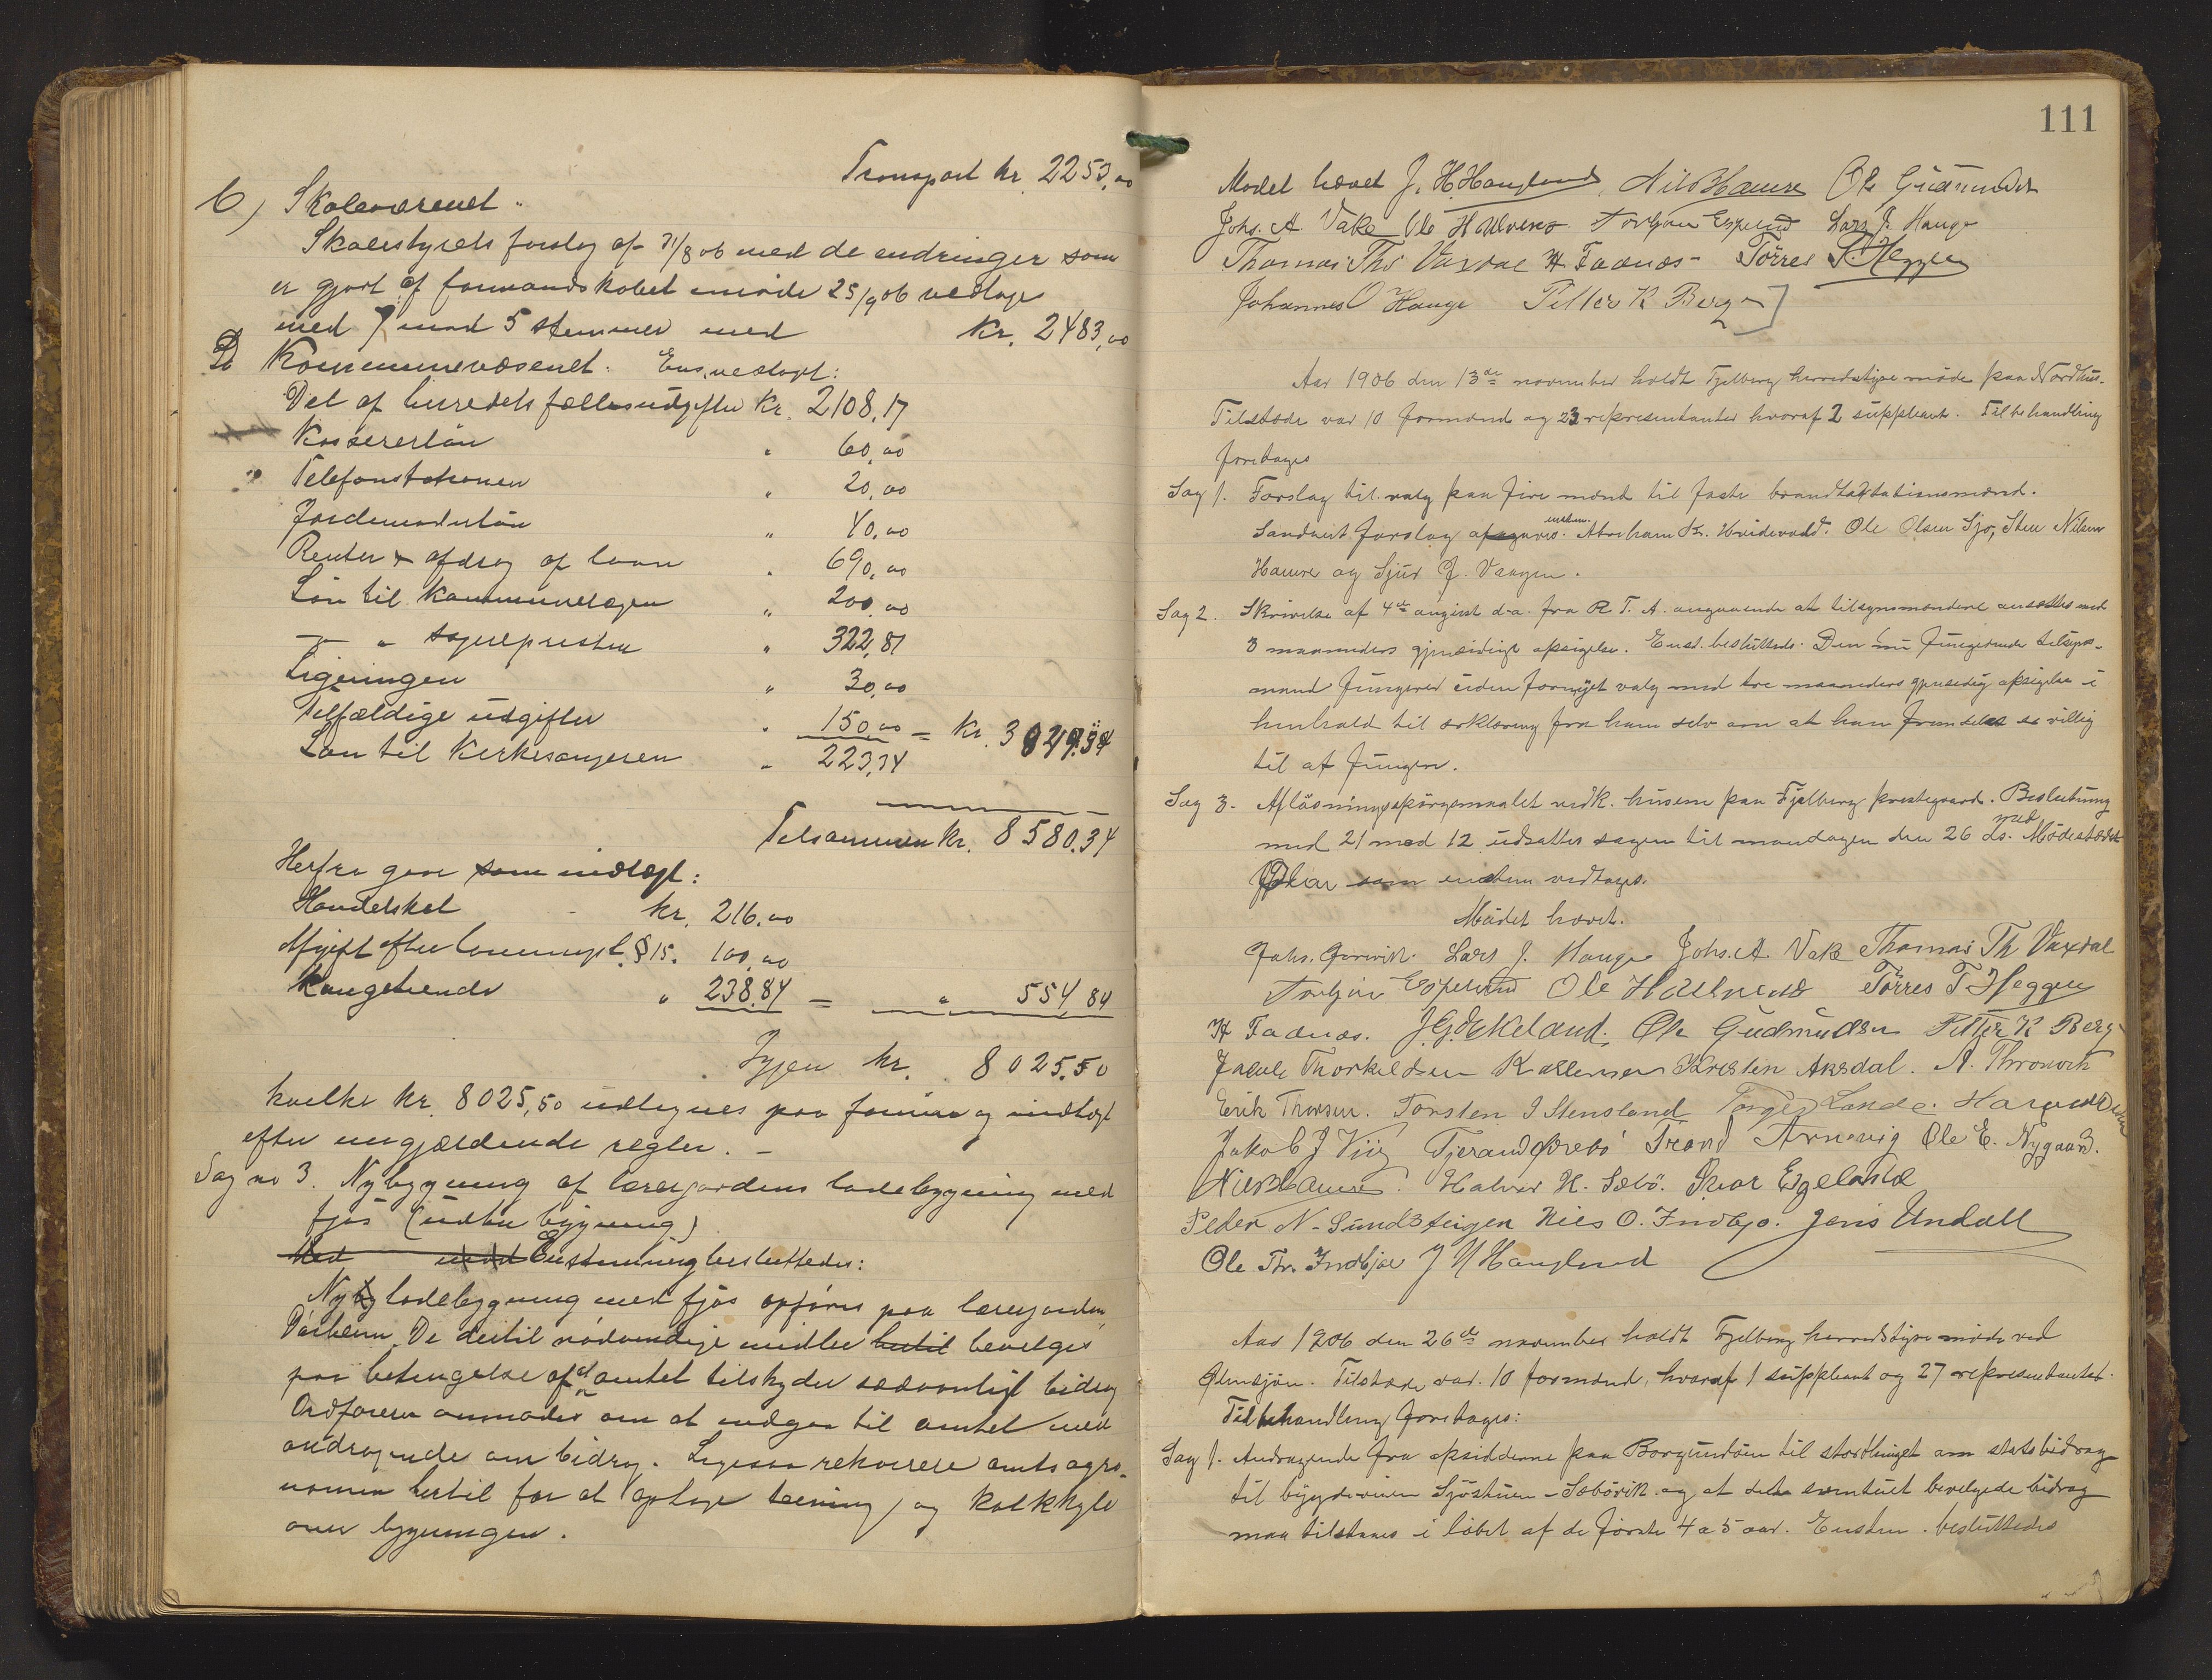 Transport kr. 2253,00
C, Skolevæsenet.
Skolestyrets forslag af 31/8 06 med de endringer som
er gjort af formandskabet i møde 25/9 06 vedtoges
med 7 mod 5 stemmer med kr. 2483,00
D Kommunevæsenet. Ens. vedtogt:
Del af herredets fællesudgifter kr. 2108,17
Kassererløn " 60,00
Telefonstationen " 20,00
Jordemoderløn " 40,00
Renter & afdrag af laan " 690,00
Løn til kommunelægen " 200,00
— " — sognepresten " 322,81
Ligningen " 30,00
Tilfældige udgifter " 150,00 = kr. 3
Løn til Kirkesangeren " 223,34
Tilsammen kr. 8580.34
Herfra gaar som indtægt:
Handelskat kr. 216.00
Afgift efter § 15. 100,00
Kongetiende " 238.84 = " 554,84
Igjen kr. 8025.50
hvilke kr. 8025,50 udlignes paa formue og indtægt
efter nugjældende regler. –
Sag no 3. Nybygning af lærerjordens ladebygning med
fjøs (udhusbygning)
Ved mod Enstemmig besluttedes:
Ny ladebygning med fjøs opføres paa lærerjorden
De dertil nødvendige midler hertil bevilges
paa betingelse af at amtet tilskyder sædvanligt bidrag
Ordføreren anmodes om at indgaa til amtet med
andragende om bidrag. Ligesaa rekvirere amtsagro-
nomen hertil for at optage tegning og kalkyle
over bygningen.
111
Mødet hævet J. H. Haugland, Nils Hamre Ole Gudmundsen
Johs. A. Vake Ole Halvens Torbjørn Espeland Lars J. Hauge
Thomas Ths Vaxdal H Faanæs - Tørres T. Heggen
Johannes O Hauge Petter K Berge
Aar 1906 den 13de november holdt Fjelberg herredstyre møde paa Nordhus.
Tilstæde var 10 formænd og 23 repræsentanter hvoraf 2 suppleant. Til behandling
foretages
Sag 1. Forslag til valg paa fire mænd til faste brandtaxtationsmænd.
Samdrigt forslag afgaves. Abraham K. Ole Olsen Sjo, Sten Nilsen
Hamre og Sjur J. Vaagen.
Sag 2. Skrivelse af 4de august d.a. fra R. T. A. angaaende at tilsynsmændene ansættes med
3 maaneders gjensidige opsigelse. Enst. besluttede: Den nu fungerende tilsyns-
mand fungerer uden fornyet valg med tre maaneders gjensidig opsigelse i
henhold til erklæring fra ham selv om at han fremdeles er villig
til at fungere.
Sag 3. Afløsningsspørgsmaalet vedk. husene paa Fjelberg prestegaard. Beslutning
med 21 mod 12 udsattes sagen til mandagen den 26 ds. Mødestedet
som enstem vedtages.
Mødet hævet.
Johs. Lars J. Hauge Johs. A. Vake Thomas Th Vaxdal
Torbjørn Espeland Ole Halvens Tørres T. Heggen
H Faanæs. J. G. Ekeland. Ole Gudmundsen Petter K Berge
Jakob Thorkildsen Kristen Aksdal. A.
Erik Thorsen. Torsten I Stensland Torger Lande.
Jakob J Viig Tjerand Trond Arnevig Ole E. Nygaard.
Nils Hamre. Halvor H. Sæbø. Ivar Egeland
Peder N. Sundsteigen Nils O. Indbjo. Jens Undall
Ole Thr. Indbjoe J H Haugland
Aar 1906 den 26de november holdt Fjelberg herredstyre møde ved
Ølensjøen. Tilstæde var 10 formænd, hvoraf 1 suppleant og 27 repræsentanter.
Til behandling foretages:
Sag 1. Andragende fra opsidderne paa Borgundøen til storthinget om statsbidrag
til bygdeveien Sjøstuen – Sæbøvik og at det eventuelt bevilgede bidrag
maa tilstaaes i løbet af de første 4 a 5 aar. Enstem. besluttedes